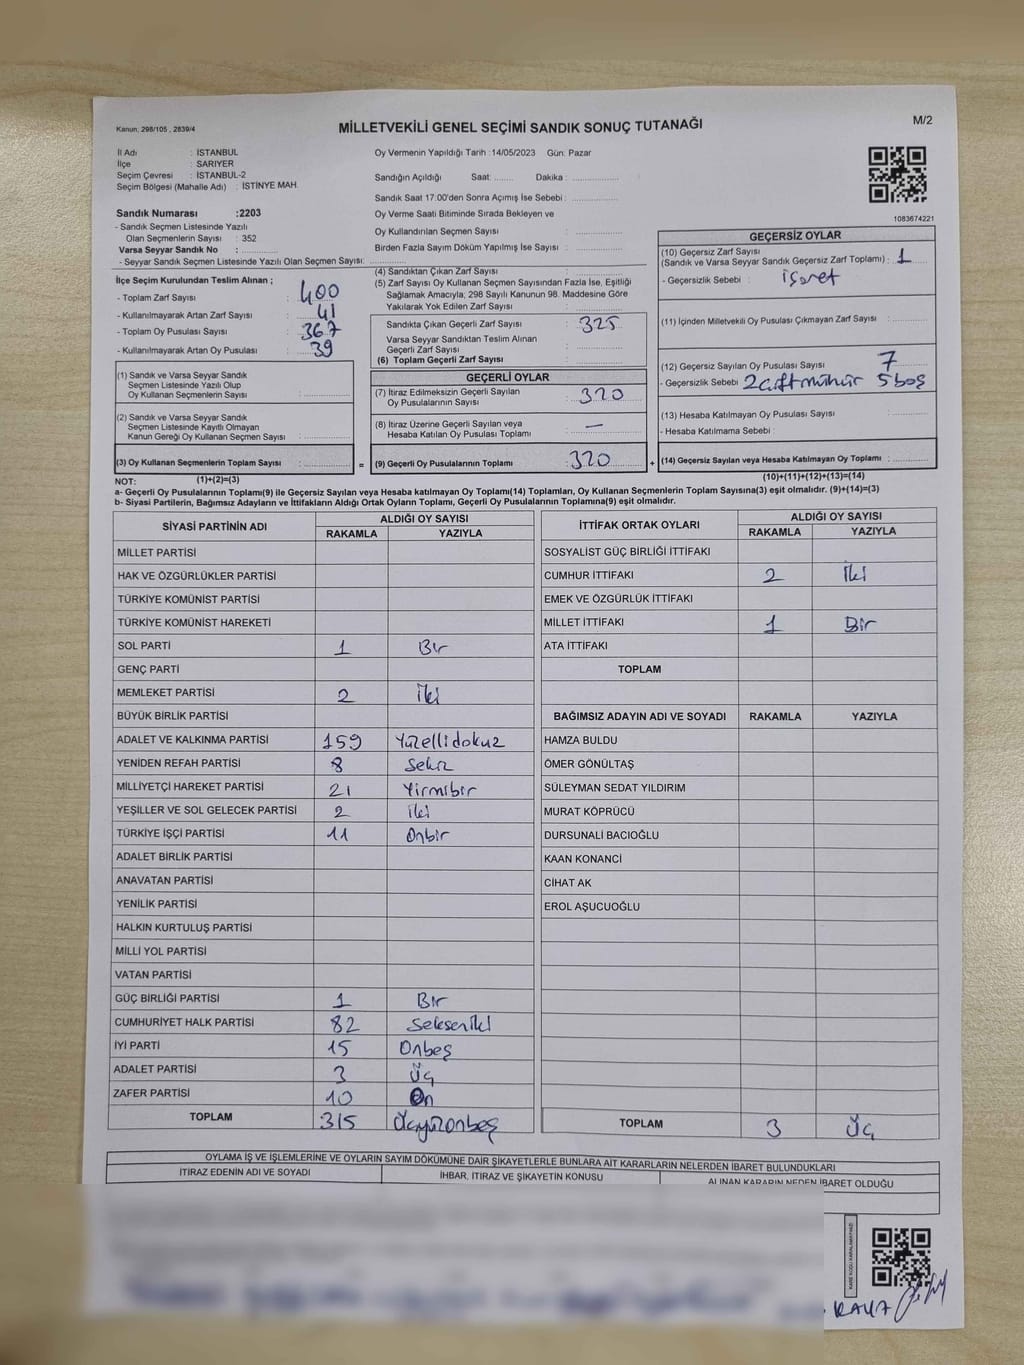 Kanun: 298/105 , 2839/4
MİLLETVEKİLİ GENEL SEÇİMİ SANDIK SONUÇ TUTANAĞI
M/2
İl Adı : İSTANBUL
İlçe : SARIYER
Seçim Çevresi : İSTANBUL-2
Seçim Bölgesi (Mahalle Adı) : İSTİNYE MAH.
Sandık Numarası :2203
- Sandık Seçmen Listesinde Yazılı
Olan Seçmenlerin Sayısı : 352
Varsa Seyyar Sandık No :
- Seyyar Sandık Seçmen Listesinde Yazılı Olan Seçmen Sayısı:
Oy Vermenin Yapıldığı Tarih :14/05/2023 Gün: Pazar
Sandığın Açıldığı Saat: ....... Dakika : ................
Sandık Saat 17:00'den Sonra Açımış İse Sebebi :
Oy Verme Saati Bitiminde Sırada Bekleyen ve
Oy Kullandırılan Seçmen Sayısı :
Birden Fazla Sayım Döküm Yapılmış İse Sayısı :
1083674221
İlçe Seçim Kurulundan Teslim Alınan ;
- Toplam Zarf Sayısı : 400
- Kullanılmayarak Artan Zarf Sayısı : 41
- Toplam Oy Pusulası Sayısı : 367
- Kullanılmayarak Artan Oy Pusulası : 39
(1) Sandık ve Varsa Seyyar Sandık
Seçmen Listesinde Yazılı Olup
Oy Kullanan Seçmenlerin Sayısı :
(2) Sandık ve Varsa Seyyar Sandık
Seçmen Listesinde Kayıtlı Olmayan
Kanun Gereği Oy Kullanan Seçmen Sayısı :
(3) Oy Kullanan Seçmenlerin Toplam Sayısı : =
(4) Sandıktan Çıkan Zarf Sayısı :
(5) Zarf Sayısı Oy Kullanan Seçmen Sayısından Fazla İse, Eşitliği
Sağlamak Amacıyla; 298 Sayılı Kanunun 98. Maddesine Göre
Yakılarak Yok Edilen Zarf Sayısı :
Sandıkta Çıkan Geçerli Zarf Sayısı : 325
Varsa Seyyar Sandıktan Teslim Alınan
Geçerli Zarf Sayısı :
(6) Toplam Geçerli Zarf Sayısı :
GEÇERLİ OYLAR
(7) İtiraz Edilmeksizin Geçerli Sayılan
Oy Pusulalarının Sayısı : 320
(8) İtiraz Üzerine Geçerli Sayılan veya
Hesaba Katılan Oy Pusulası Toplamı : —
(9) Geçerli Oy Pusulalarının Toplamı : 320 +
GEÇERSİZ OYLAR
(10) Geçersiz Zarf Sayısı
(Sandık ve Varsa Seyyar Sandık Geçersiz Zarf Toplamı) : 1
- Geçersizlik Sebebi : işaret
(11) İçinden Milletvekili Oy Pusulası Çıkmayan Zarf Sayısı :
(12) Geçersiz Sayılan Oy Pusulası Sayısı : 7
- Geçersizlik Sebebi 2 çift mühür 5 boş
(13) Hesaba Katılmayan Oy Pusulası Sayısı :
- Hesaba Katılmama Sebebi :
(14) Geçersiz Sayılan veya Hesaba Katılmayan Oy Toplamı :
NOT: (1)+(2)=(3)
(10)+(11)+(12)+(13)=(14)
a- Geçerli Oy Pusulalarının Toplamı(9) ile Geçersiz Sayılan veya Hesaba katılmayan Oy Toplamı(14) Toplamları, Oy Kullanan Seçmenlerin Toplam Sayısına(3) eşit olmalıdır. (9)+(14)=(3)
b- Siyasi Partilerin, Bağımsız Adayların ve İttifakların Aldığı Ortak Oyların Toplamı, Geçerli Oy Pusulalarının Toplamına(9) eşit olmalıdır.
SİYASİ PARTİNİN ADI ALDIĞI OY SAYISI
RAKAMLA YAZIYLA
MİLLET PARTİSİ
HAK VE ÖZGÜRLÜKLER PARTİSİ
TÜRKİYE KOMÜNİST PARTİSİ
TÜRKİYE KOMÜNİST HAREKETİ
SOL PARTİ 1 Bir
GENÇ PARTİ
MEMLEKET PARTİSİ 2 İki
BÜYÜK BİRLİK PARTİSİ
ADALET VE KALKINMA PARTİSİ 159 Yüzellidokuz
YENİDEN REFAH PARTİSİ 8 Sekiz
MİLLİYETÇİ HAREKET PARTİSİ 21 Yirmibir
YEŞİLLER VE SOL GELECEK PARTİSİ 2 iki
TÜRKİYE İŞÇİ PARTİSİ 11 Onbir
ADALET BİRLİK PARTİSİ
ANAVATAN PARTİSİ
YENİLİK PARTİSİ
HALKIN KURTULUŞ PARTİSİ
MİLLİ YOL PARTİSİ
VATAN PARTİSİ
GÜÇ BİRLİĞİ PARTİSİ 1 Bir
CUMHURİYET HALK PARTİSİ 82 Sekseniki
İYİ PARTİ 15 Onbeş
ADALET PARTİSİ 3 Üç
ZAFER PARTİSİ 10 On
TOPLAM 315 Üçyüzonbeş
İTTİFAK ORTAK OYLARI ALDIĞI OY SAYISI
RAKAMLA YAZIYLA
SOSYALİST GÜÇ BİRLİĞİ İTTİFAKI
CUMHUR İTTİFAKI 2 İki
EMEK VE ÖZGÜRLÜK İTTİFAKI
MİLLET İTTİFAKI 1 Bir
ATA İTTİFAKI
TOPLAM
BAĞIMSIZ ADAYIN ADI VE SOYADI RAKAMLA YAZIYLA
HAMZA BULDU
ÖMER GÖNÜLTAŞ
SÜLEYMAN SEDAT YILDIRIM
MURAT KÖPRÜCÜ
DURSUNALİ BACIOĞLU
KAAN KONANCİ
CİHAT AK
EROL AŞUCUOĞLU
TOPLAM 3 Üç
OYLAMA İŞ VE İŞLEMLERİNE VE OYLARIN SAYIM DÖKÜMÜNE DAİR ŞİKAYETLERLE BUNLARA AİT KARARLARIN NELERDEN İBARET BULUNDUKLARI
İTİRAZ EDENİN ADI VE SOYADI İHBAR, İTİRAZ VE ŞİKAYETİN KONUSU ALINAN KARARIN NEDEN İBARET OLDUĞU